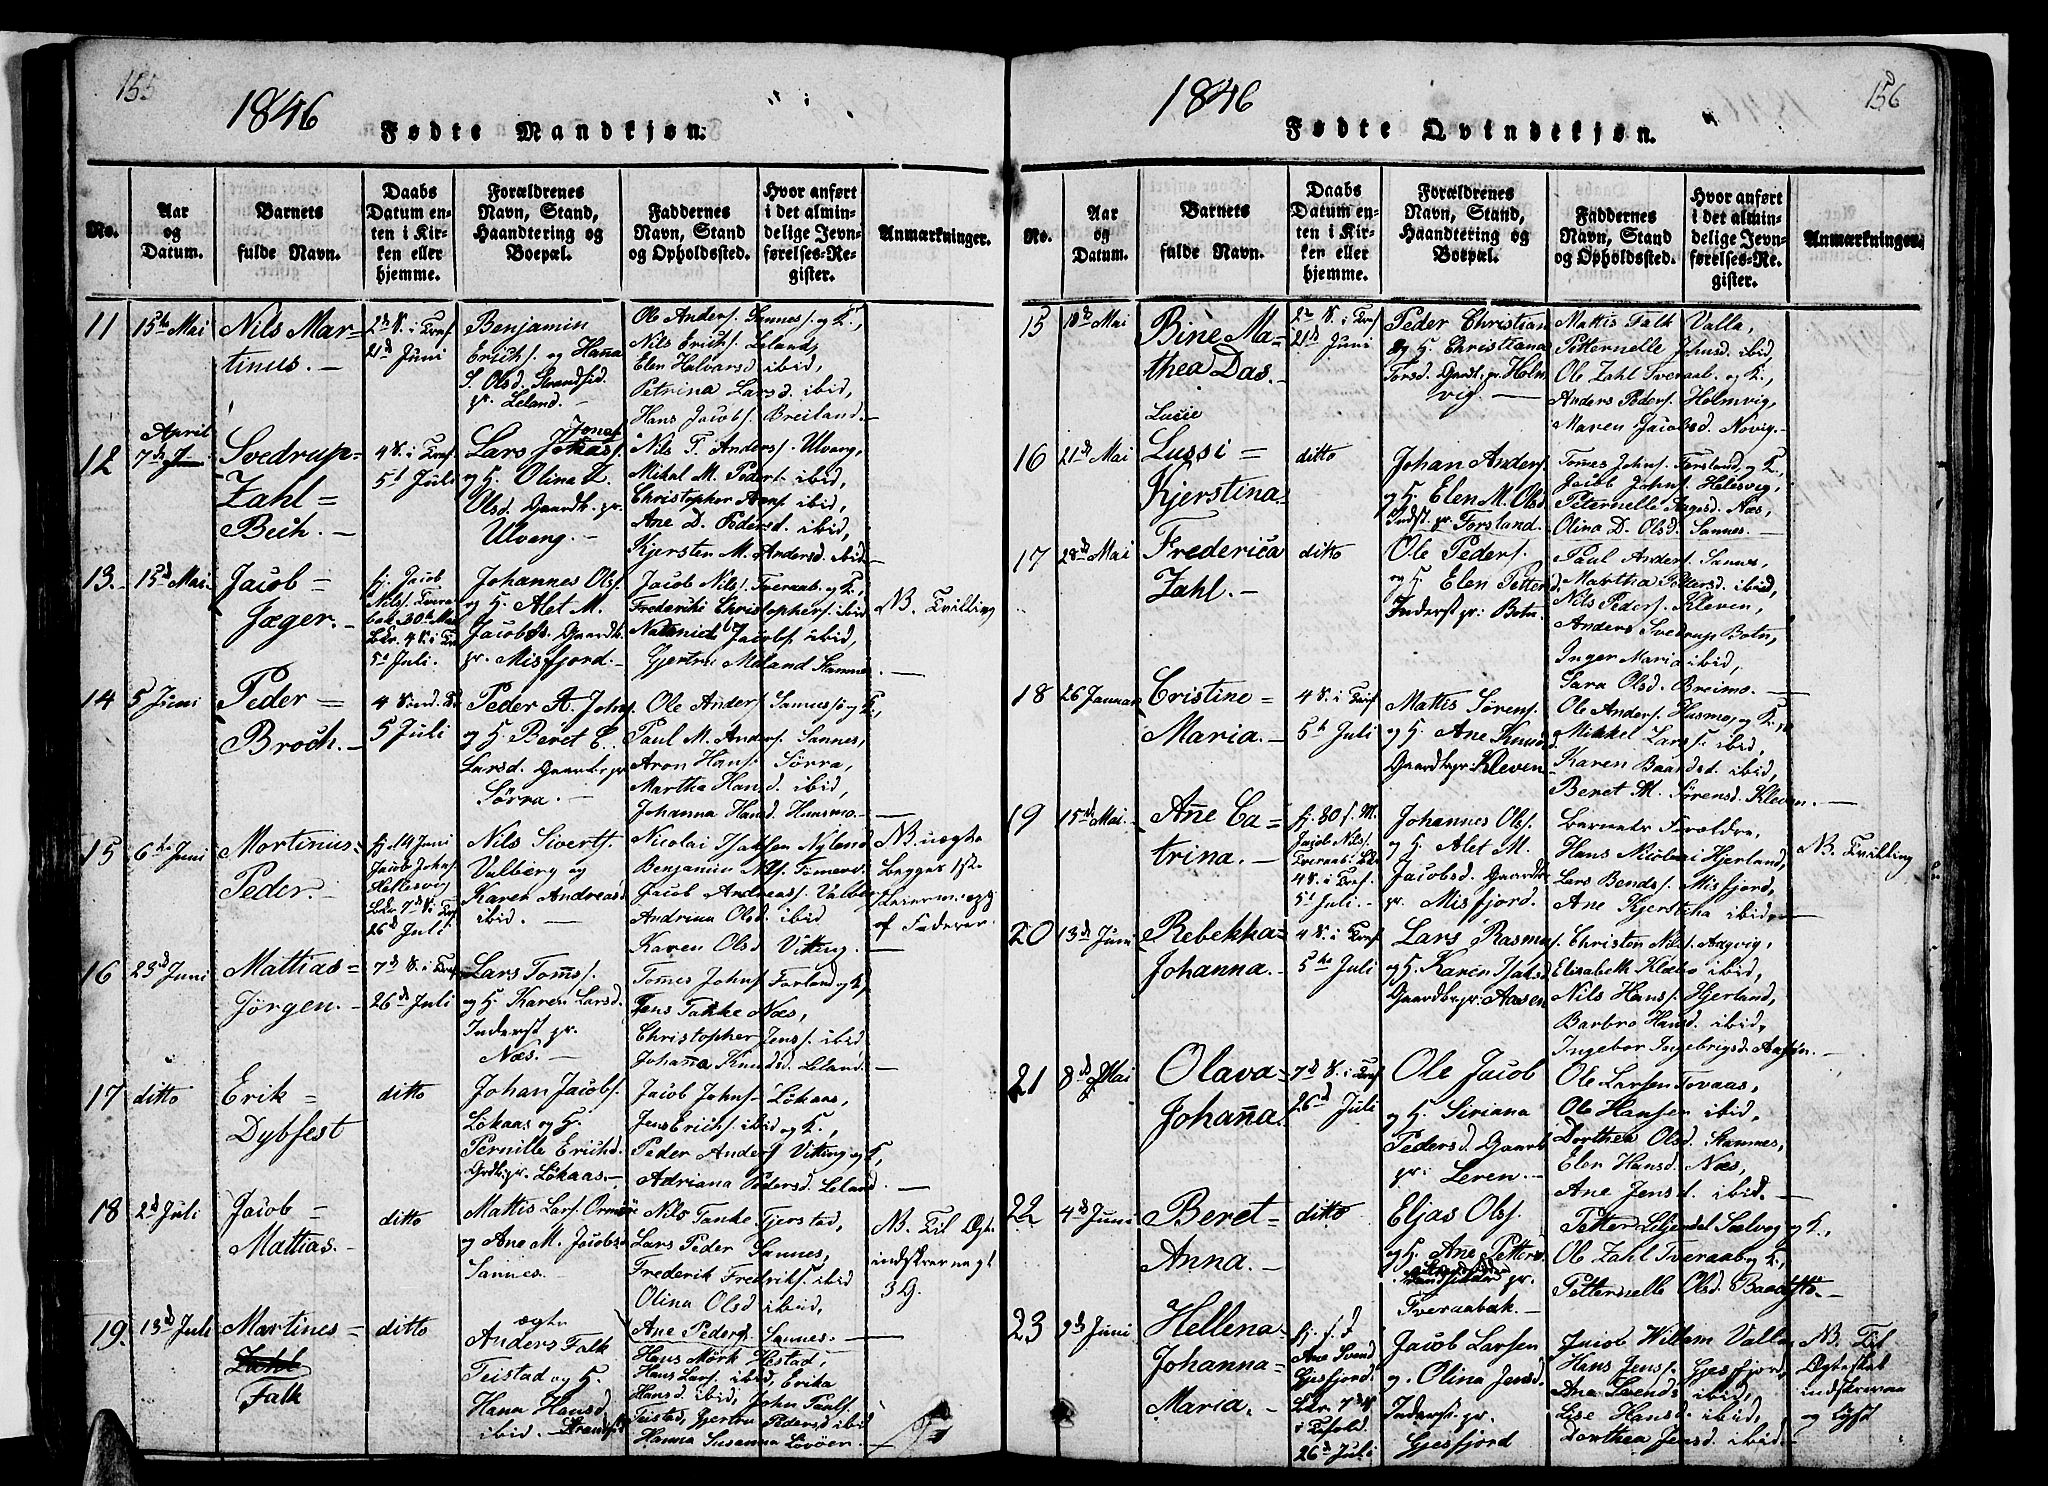 155
1846
Fødte Mandkjøn.
No.
Aar
og
Datum.
Barnets
fulde Navn.
Daabs
Datum en-
ten i Kir-
ken eller
hjemme.
Forældrenes
Navn, Stand,
Haandtering og
Boepæl.
Faddernes
Navn, Stand
og Opholdssted.
Hvor anført
i det almin-
delige Jevn-
førelses-Re-
gister.
Anmærkninger.
11
15de Mai
Nils Mar-
tinus.
21d Juni
Benjamin
Erichs. og Hanna
S. Olsd.
pr. Leland.
Ole Anders. Sannes. og K.,
Nils Erichs. Leland,
Elen Halvarsd ibid,
Petrina Larsd ibid,
Hans Jacobs. Breiland.
12
April
7de
Svedrup-
Zahl=
Bech.
5t Juli
Lars Jonas
og H. Olina Z.
Olsd. Gaardb. pr.
Ulvang.
Nils T. Anders. Ulvang,
Mikal M. Peders. ibid,
Christopher ibid,
Ane D. Pedersd. ibid,
Kjersten M. Andersd. ibid
13.
15d Mai
Jacob=
Jæger.
hj. Jacob
Nils. Tvera-
bak 30te Mai
5t Juli.
Johannes Ols.
og H. Alet M.
Jacobsd. Gaardb.
pr. Misfjord.
Jacob Nils. Tveraab. og K,
Frederiki Christophers. ibid
Jacobs. ibid,
NB. Tvilling
14
5 Juni
Peder=
Broch.
5 Juli
Peder A. Johns.
og H. Beret E.
Larsd. Gaardb. pr
Sørra.
Ole Anders. Sannes og K,
Paul M. Anders. Sannes,
Aron Hans. Sørra,
Martha Hansd. ibid,
Johanna Hansd. Husmo.
15
6te Juni
Mortinus
Peder.
hj. 14 Juni
Jacob Johns.
Hellesvig
26d Juli
Nils Siverts.
Valberg og
Karen Andreasd.
ibid.
Nicolai Isaksen Nyland
Benjamin Nils.
Jacob Andreass. Valber
Andrina Olsd. ibid
Karen Olsd Vitting.
NB. uægte
begges 1ste
af Faderen.
16
23d Juni
Mattias=
Jørgen.
26d Juli
Lars Toms.
og H. Karen Larsd.
Inderst pr.
Næs.
Tomes Johns. Forland og K,
Jens Næs,
Christopher Jens. ibid
Johanna Knudsd. Leland.
17
ditto
Erik=
Dybfest
ditto
Johan Jacobs.
Løkaas og H.
Pernille Erichd.
Grdb. pr. Løkaas.
Jacob Johns. Løkaas,
Jens Erichs. ibid og K.,
Peder Anders. Vitting og K,
Adriana Pedersd. Leland.
18
2d Juli
Jacob=
Mattias.
ditto
Mattis Lars.
og Ane M. Jacobsd.
Sannes.
Nils Tanke Tjerstad,
Lars Peder Sannes,
Frederik Fredriks. ibid
Olina Olsd ibid,
Ane Peders. Sannes.
NB. Til Ægte
19.
13d Juli
Martines=
Zahl
Falk
ditto
ægte
Anders Falk
Teistad og H.
Hana Hansd.
ibid.
Hans Mørk Hestad,
Hans Lars. ibid, Erika
Hansd. ibid, John Pauls.
Teistad, Gjertru Pedersd. ibid
Hanna Susanna Løvöen.
156
1846
Fødte Qvindekjøn.
No.
Aar
og
Datum.
Barnets
fulde Navn.
Daabs
Datum en-
ten i Kir-
ken eller
hjemme.
Forældrenes
Navn, Stand,
Haandtering og
Boepæl.
Faddernes
Navn, Stand
og Opholdssted.
Hvor anført
i det almin-
delige Jevn-
førelses-Re-
gister.
Anmærkninger.
15
18de Mai
Bine Ma-
thea Das.
21d Juni
Peder Christian
og H. Christiana
Torsd. Gardb. pr. Holm
vig.
Mattis Falk Valla,
Petternelle Johnsd. ibid,
Ole Zahl Tveraab. og K,
Anders Peders. Holmvig,
Maren Jacobsd. Novig.
16
21d Mai
Lusie
Lussi=
Kjerstina
ditto
Johan Anders.
og H. Elen M. Olsd.
Indst. pr. Forsland.
Tomes Johns. Forsland, og K,
Jacob Johns. Helesvig,
Peternelle Aagesd. Næs,
Olina D. Olsd. Sannes.
17
28de Mai
Frederica
Zahl.
ditto
Ole Peders.
og H. Elen Petterd.
Inderst pr: Botn.
Paul Anders. Sannes,
Martha Pettersd. ibid,
Nils Peders. Kleven,
Anders Svedrup Botn,
Inger Maria ibid,
Sara Olsd. Breimo.
18
26 Januar
Cristine=
Maria.
4 S. i Tref
5te Juli
Mattis Sørens.
og H. Ane Knudsd.
Gaardb. pr Kleven
Ole Anders. Husmo, og K.,
Mikkel Lars. ibid,
Karen Baardsd. ibid,
Beret M. Sørensd. Kleven.
19
15de Mai.
Anne Ca=
trina.
hj. 30 f. M.
Jacob Nils.
Tveraab.
4 S. i Tref.
5t Juli.
Johannes Ols.
og H. Alet M.
Jacobsd. Gaardb
pr. Misfjord.
Barnets Forældre,
Hans Nicolai Hjerland,
Lars Bends. Misfjord,
Ane Kjerstina ibid.
NB. Tvilling
20
13d Juni
Rebekka=
Johanna.
4 S. i Tref
5te Juli
Lars Rasmus.
og H. Karen Isaksd.
Gaardb. pr. Aasen
Christen Nils. Aagvig,
Elisabeth Klæbo ibid,
Nils Hans. Hjerland,
Barbro Hansd. ibid,
Ingebor Ingebrigsd. Aasen.
21
8d Mai
Olava=
Johanna.
7d S. i Tref
26d Juli
Ole Jacob
og H. Siriana
Pedersd. Gaardb
pr. Leren.
Ole Larsen Tovaas,
Ole Hansen ibid,
Dorthea Olsd. Stamnes,
Elen Hansd. Næs,
Ane Jens. ibid.
22
4d Juni
Beret=
Anna.
ditto
Eljas Ols.
og H. Ane Petters.
pr.
Tveraabak.
Petter Liljendal Sælvog og K,
Ole Zahl Tveraab. og K,
Petternelle Olsd.
23
9d Juni
Hellena
Johanna=
Maria.
Ane Svend
Gjesfjord.
26d Juli
Jacob Larsen
og Olina Jensd.
Inderst. pr.
Gjesfjord
Jacob Willam Valla
Hans Jens. Gjesfjord,
Ane Svends ibid,
Lise Hansd. ibid,
Dorthea Jensd. ibid.
NB. Til
Ægteskab
indskrevne
og lyst